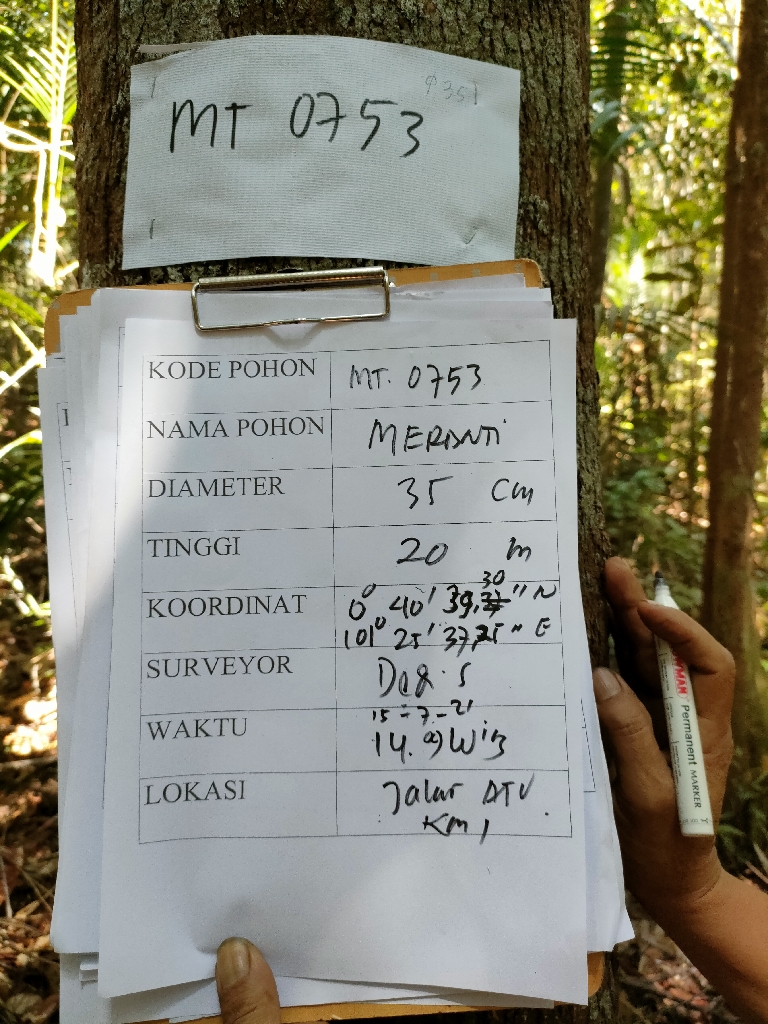 MT 0753
KODE POHON MT. 0753
NAMA POHON MERANTI
DIAMETER 35 Cm
TINGGI 20 m
30
KOORDINAT 0° 40' 39, " N
101° 25' 37, " E
SURVEYOR
15-7-21
WAKTU 14.09 Wib
LOKASI Jalur ATV
Km 1
Permanent MARKER